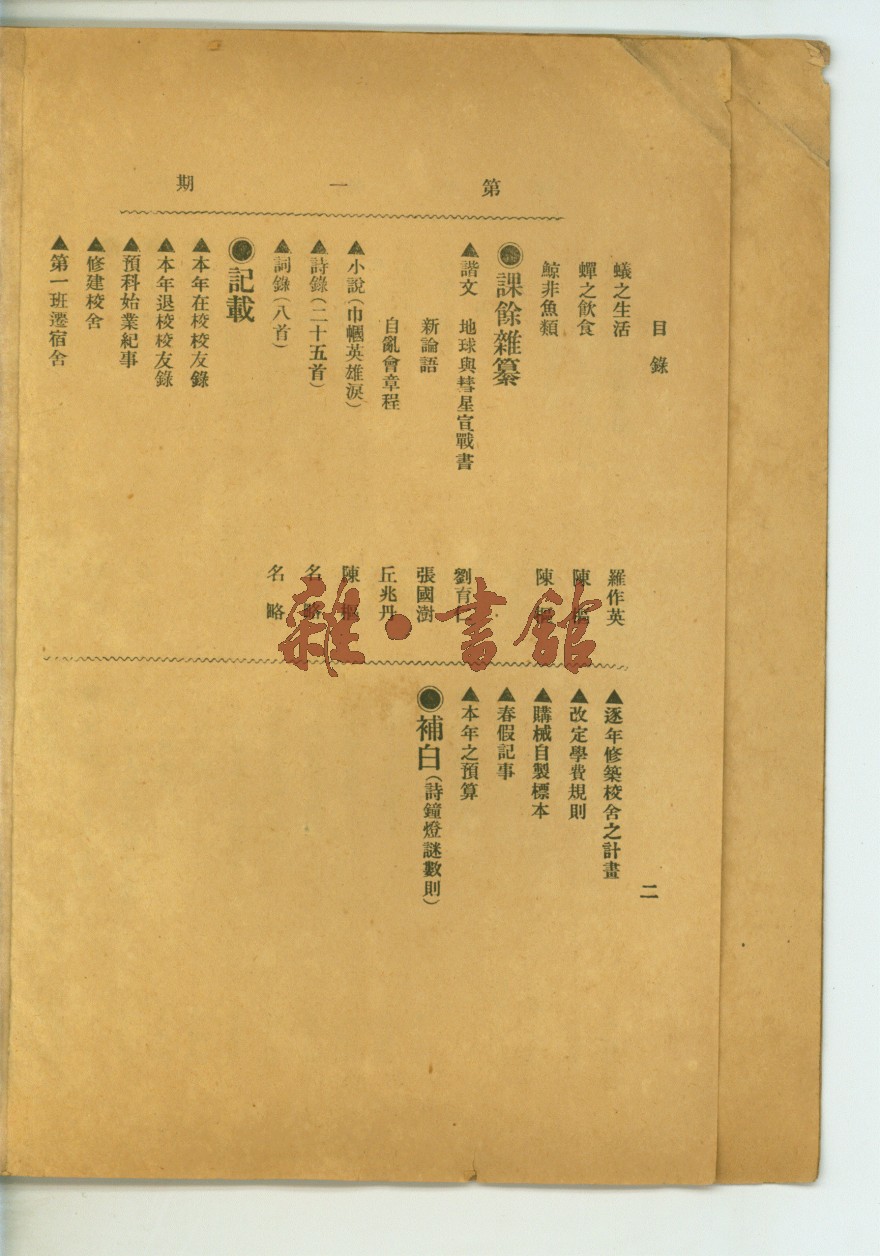 目錄 二
第一期
蟻之生活 羅作英
蟬之飲食 陳
鯨非魚類 陳
●課餘雜纂
▲諧文 地球與彗星宣戰書 劉育
新論語 張國澍
自亂會章程 丘兆丹
▲小說(巾幗英雄淚) 陳
▲詩錄(二十五首) 名略
▲詞錄(八首) 名略
●記載
▲本年在校校友錄
▲本年退校校友錄
▲預科始業紀事
▲修建校舍
▲第一班遷宿舍
▲逐年修築校舍之計畫
▲改定學費規則
▲購械自製標本
▲春假記事
▲本年之預算
●補白(詩鐘燈謎數則)
雜·書館